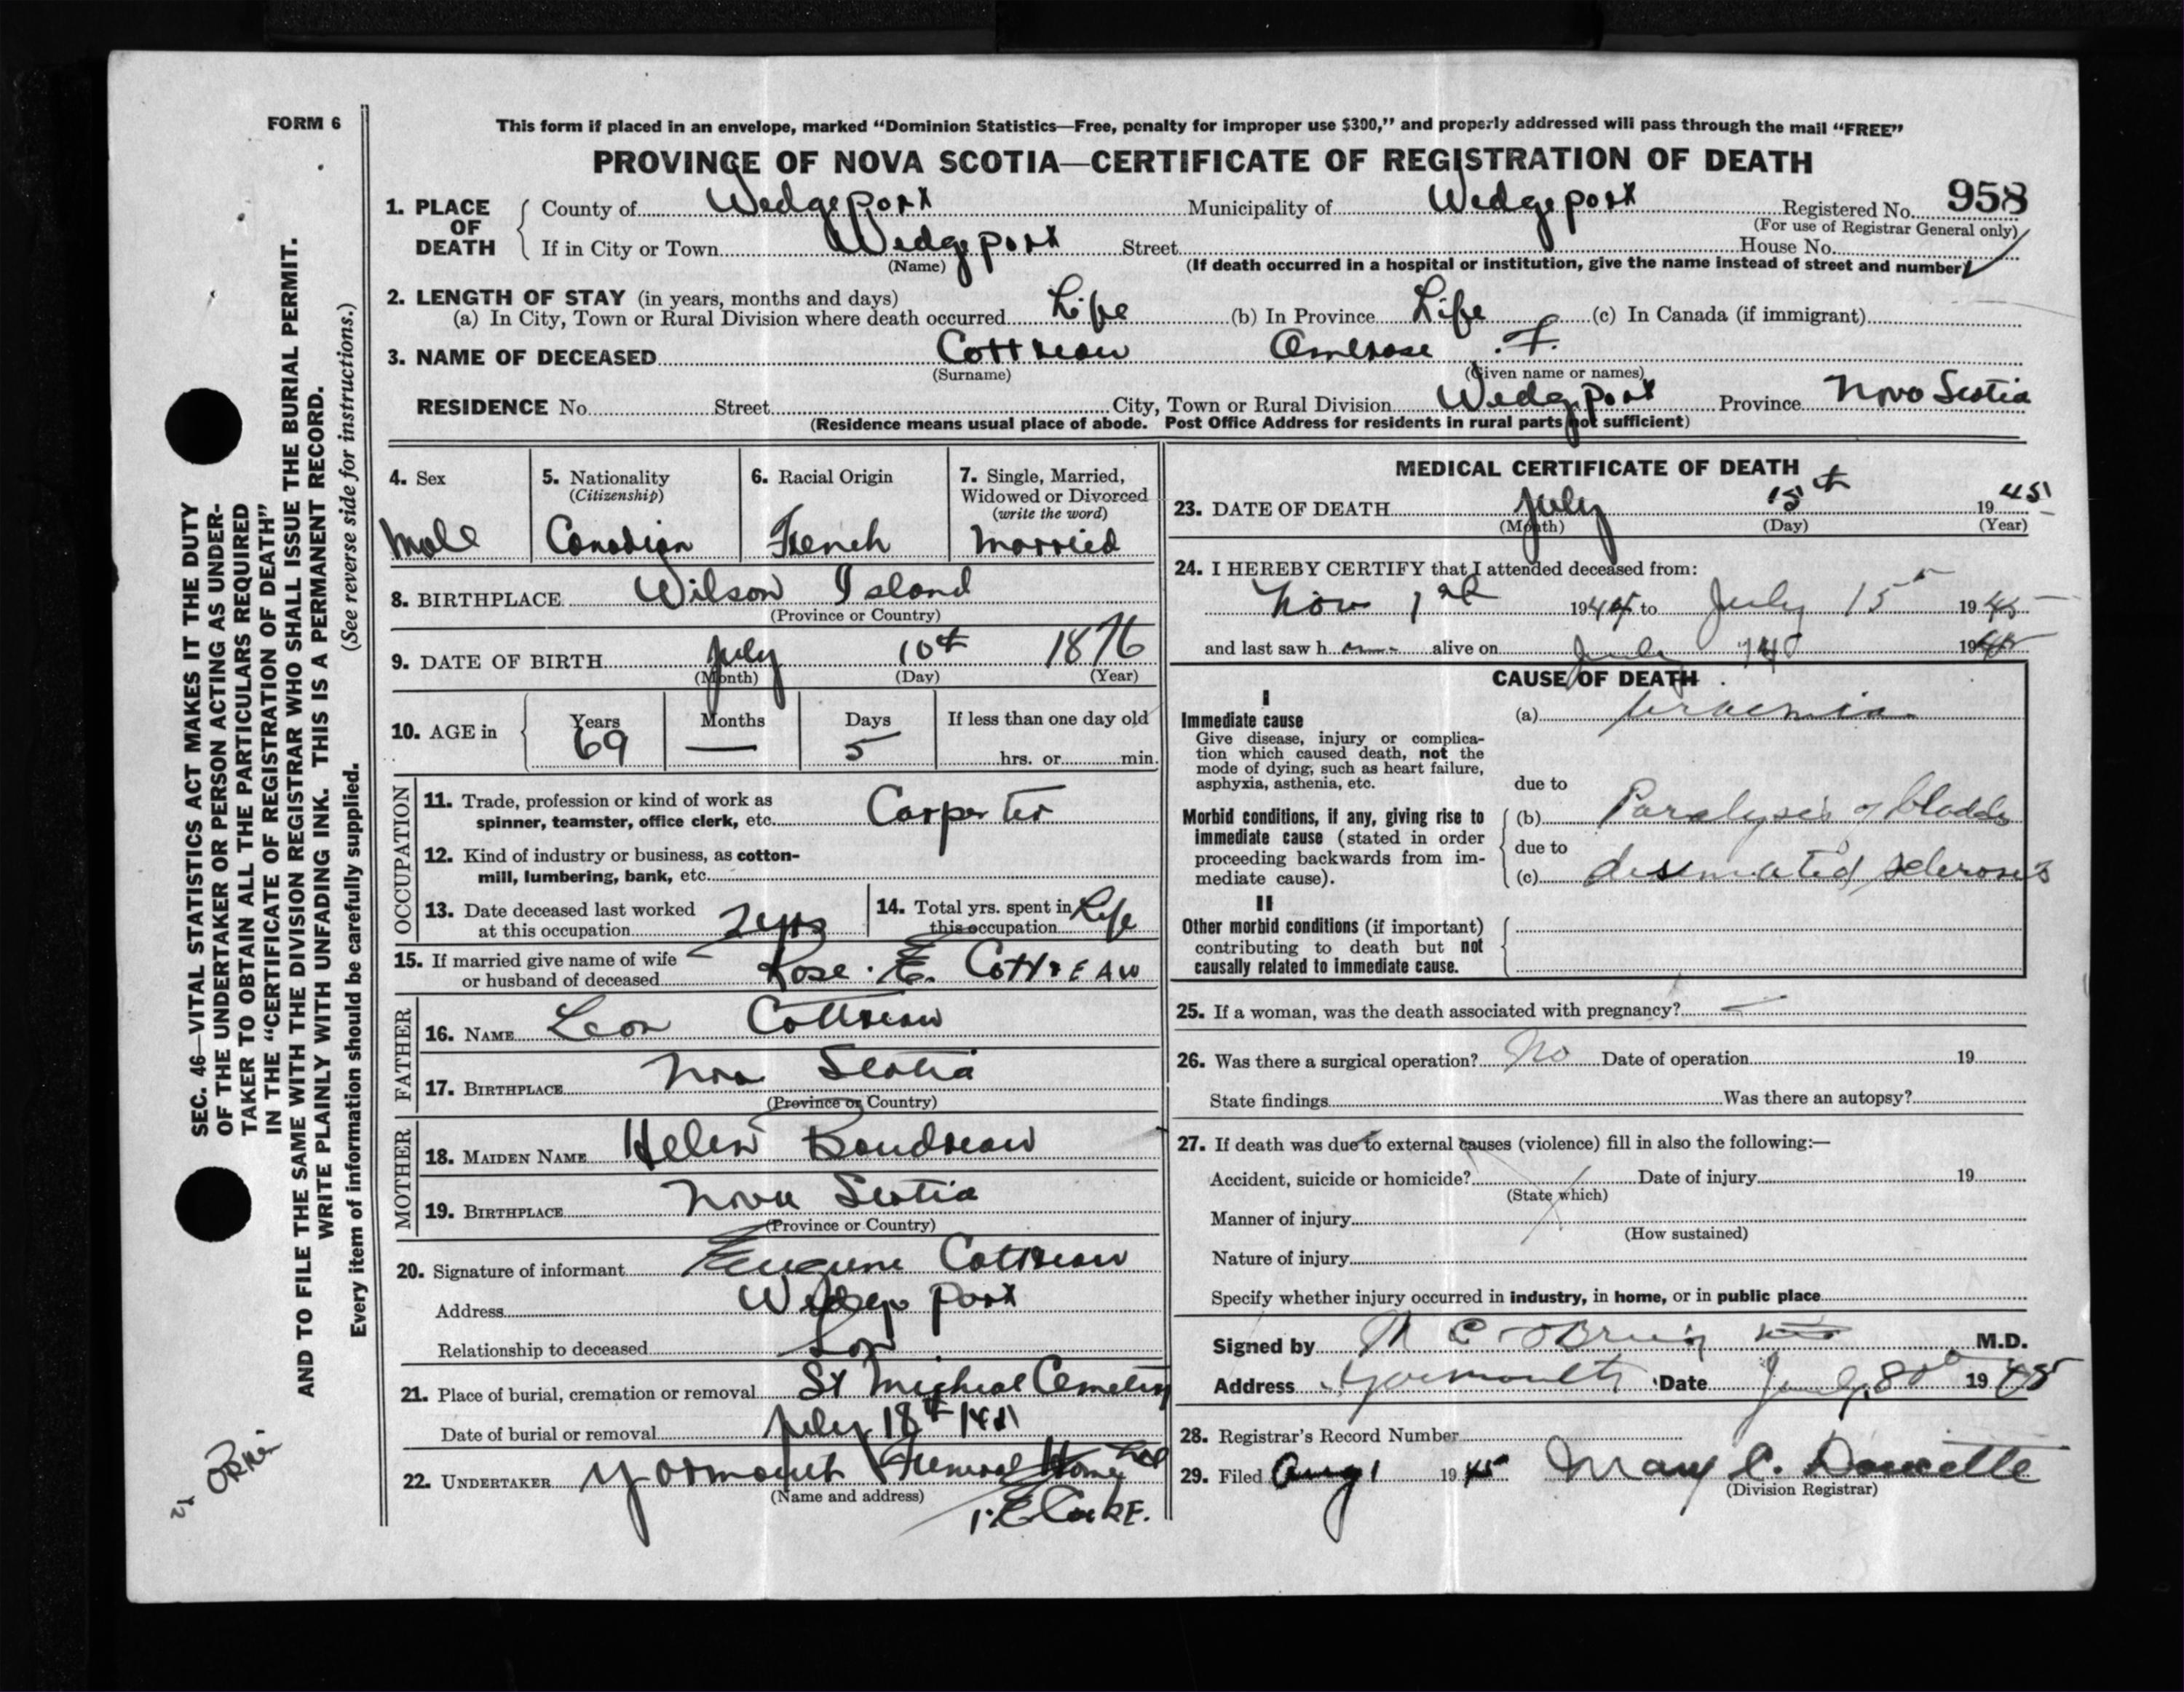 FORM 6
This form if placed in an envelope, marked “Dominion Statistics—Free, penalty for improper use $300,” and properly addressed will pass through the mail “FREE”
PROVINCE OF NOVA SCOTIA—CERTIFICATE OF REGISTRATION OF DEATH
958
1. PLACE OF DEATH { County of Wedgeport Municipality of Wedgeport Registered No.
(For use of Registrar General only)
If in City or Town Wedgeport Street House No.
(Name) (If death occurred in a hospital or institution, give the name instead of street and number)
2. LENGTH OF STAY (in years, months and days)
(a) In City, Town or Rural Division where death occurred Life (b) In Province Life (c) In Canada (if immigrant)
3. NAME OF DECEASED Cottreau Ambrose .F.
(Surname) (Given name or names)
RESIDENCE No. Street City, Town or Rural Division Wedgeport Province Nova Scotia
(Residence means usual place of abode. Post Office Address for residents in rural parts not sufficient)
4. Sex 5. Nationality (Citizenship) 6. Racial Origin 7. Single, Married, Widowed or Divorced (write the word)
Male Canadian French Married
8. BIRTHPLACE Wilson Island
(Province or Country)
9. DATE OF BIRTH July 10th 1876
(Month) (Day) (Year)
10. AGE in { Years Months Days If less than one day old
69 — 5 hrs. or min.
OCCUPATION
11. Trade, profession or kind of work as
spinner, teamster, office clerk, etc. Carpenter
12. Kind of industry or business, as cotton-
mill, lumbering, bank, etc.
13. Date deceased last worked
at this occupation 2 yrs
14. Total yrs. spent in
this occupation Life
15. If married give name of wife
or husband of deceased Rose. E. Cottreau
FATHER
16. NAME Leon Cottreau
17. BIRTHPLACE Nova Scotia
(Province or Country)
MOTHER
18. MAIDEN NAME Helen Boudreau
19. BIRTHPLACE Nova Scotia
(Province or Country)
20. Signature of informant Eugene Cottreau
Address Wedgeport
Relationship to deceased Son
21. Place of burial, cremation or removal St Micheal Cemetery
Date of burial or removal July 18th
22. UNDERTAKER Yarmouth Funeral Home Ltd
(Name and address)
MEDICAL CERTIFICATE OF DEATH
23. DATE OF DEATH July 15th 1945
(Month) (Day) (Year)
24. I HEREBY CERTIFY that I attended deceased from:
Nov 1st 1944 to July 15th 1945
and last saw h alive on July 1945
CAUSE OF DEATH
I
Immediate cause
Give disease, injury or complica-
tion which caused death, not the
mode of dying, such as heart failure,
asphyxia, asthenia, etc.
(a) Uraemia
due to
Morbid conditions, if any, giving rise to
immediate cause (stated in order
proceeding backwards from im-
mediate cause).
(b) Paralysis of bladder
due to
(c) disseminated sclerosis
II
Other morbid conditions (if important)
contributing to death but not
causally related to immediate cause.
25. If a woman, was the death associated with pregnancy? —
26. Was there a surgical operation? No Date of operation 19
State findings Was there an autopsy?
27. If death was due to external causes (violence) fill in also the following:—
Accident, suicide or homicide? Date of injury 19
(State which)
Manner of injury
(How sustained)
Nature of injury
Specify whether injury occurred in industry, in home, or in public place
Signed by O'Brien M.D.
Address Yarmouth Date July 30 1945
28. Registrar's Record Number
29. Filed Aug 1 1945 Mary C. Doucette
(Division Registrar)
SEC. 46—VITAL STATISTICS ACT MAKES IT THE DUTY
OF THE UNDERTAKER OR PERSON ACTING AS UNDER-
TAKER TO OBTAIN ALL THE PARTICULARS REQUIRED
IN THE “CERTIFICATE OF REGISTRATION OF DEATH”
AND TO FILE THE SAME WITH THE DIVISION REGISTRAR WHO SHALL ISSUE THE BURIAL PERMIT.
WRITE PLAINLY WITH UNFADING INK. THIS IS A PERMANENT RECORD.
Every item of information should be carefully supplied. (See reverse side for instructions.)